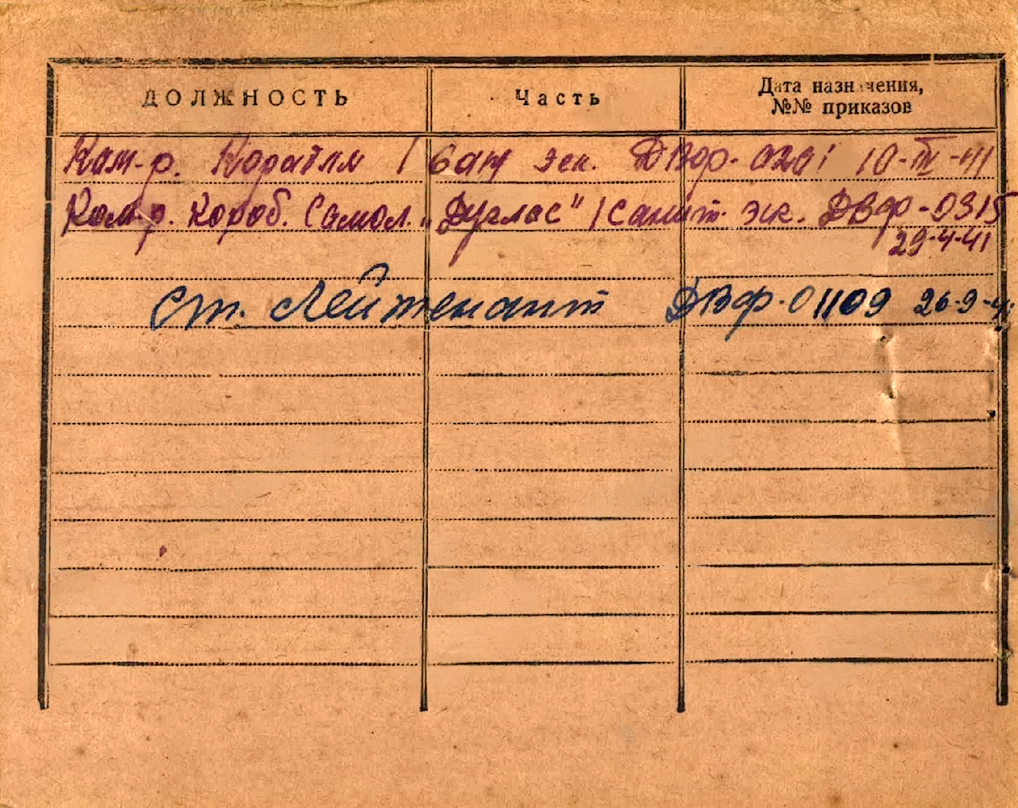 ДОЛЖНОСТЬ Часть Дата назначения, №№ приказов
Ком-р. Корабля / эск. ДВФ-0261 10-III-41
Ком-р. Кораб. Самол. „Дуглас" / Санит. эск. ДВФ-0315
29-4-41
Ст. Лейтенант ДВФ-01109 26-9-41